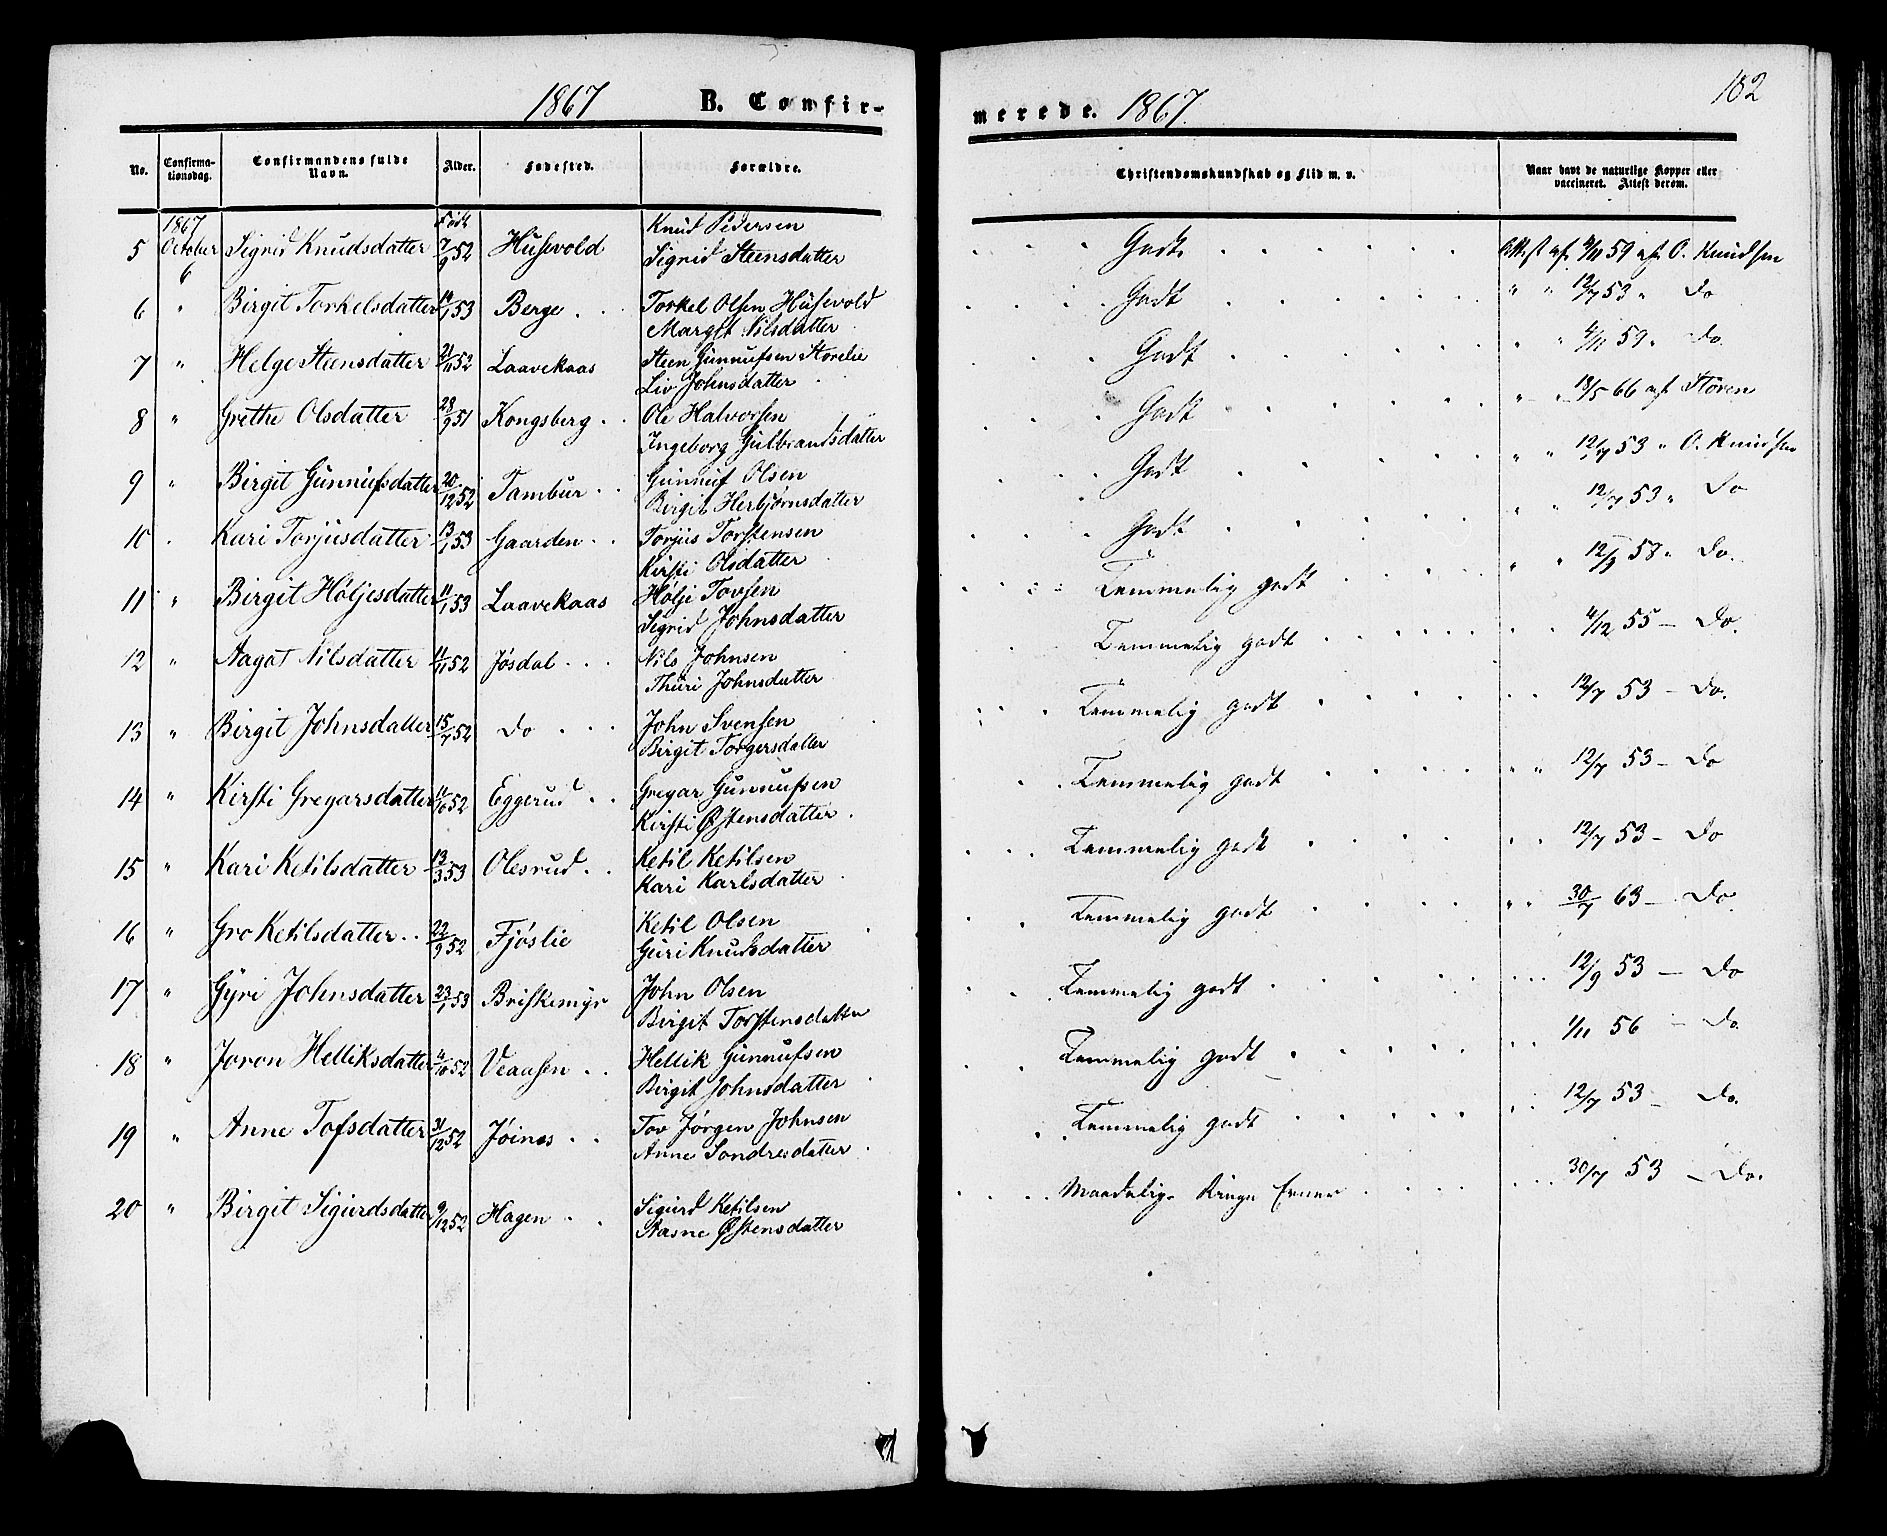 1867 B. Confir-
merede. 1867.
182
No. Confirma-tionsdag. Confirmandens fulde Navn. Alder. Fødested. Forældre. Christendomskundskab og Flid m. v. Naar havt de naturlige Kopper eller vaccineret. Attest derom.
1867 Født Knud Pedersen
5 October 6 Sigrid Knudsdatter 7/9 52 Husevold Sigrid Steensdatter Godt Attest af 4/11 59 af O. Knudsen
6 " Birgit Torkelsdatter 53 Berge Torkel Olsen Husevold Godt " " 12/7 53 " Do
Margit Nilsdatter
7 " Helge Steensdatter 21/11 52 Laavekaas Steen Gunnufsen Storelie Godt " " 4/11 59 " Do.
Liv Johnsdatter
8 " Grethe Olsdatter 28/9 51 Kongsberg Ole Halvorsen Godt " " 18/5 66 af Støren
Ingeborg Gulbrandsdatter
9 " Birgit Gunnufsdatter 20/12 52 Tambur Gunnuf Olsen Godt " " 12/7 53 " O. Knudsen
Birgit Herbjørnsdatter
10 " Kari Torjusdatter 13/1 53 Gaarden Torjus Torstensen Godt " " 12/7 53 " Do
Kirsti Olsdatter
11 " Birgit Høljesdatter 11/1 53 Laavekaas Hølje Tovsen Temmelig godt " " 58 " Do.
Sigrid Johnsdatter
12 " Aagot Nilsdatter 11/11 52 Jøsdal Nils Johnsen Temmelig godt 4/12 55 — Do.
Thuri Johnsdatter
13 " Birgit Johnsdatter 15/7 52 Do John Svensen Temmelig godt 12/7 53 — Do.
Birgit Torgersdatter
14 " Kirsti Gregarsdatter 11/10 52 Eggerud Gregar Gunnufsen Temmelig godt " " 12/7 53 — Do
Kirsti Østensdatter
15 " Kari Ketilsdatter 13/3 53 Olesrud Ketil Ketilsen Temmelig godt 12/7 53 — Do
Kari Karlsdatter
16 " Gro Ketilsdatter 22/9 52 Fjøslie Ketil Olsen Temmelig godt " " 30/7 63 — Do
Guri Knudsdatter
17 " Gyri Johnsdatter 23/1 53 Briskemyr John Olsen Temmelig godt 12/9 53 — Do
Birgit Torstensdatter
18 " Joron Helliksdatter 4/10 52 Veaasen Hellik Gunnufsen Temmelig godt 1/11 56 — Do.
Birgit Johnsdatter
19 " Anne Tofsdatter 31/12 52 Jøines Tov Jørgen Johnsen Temmelig godt 12/7 53 — Do.
Anne Sondresdatter
20 " Birgit Sigurdsdatter 9/12 52 Hagen Sigurd Ketilsen Maadelig. Ringe Evner 30/7 53 — Do.
Aasne Østensdatter